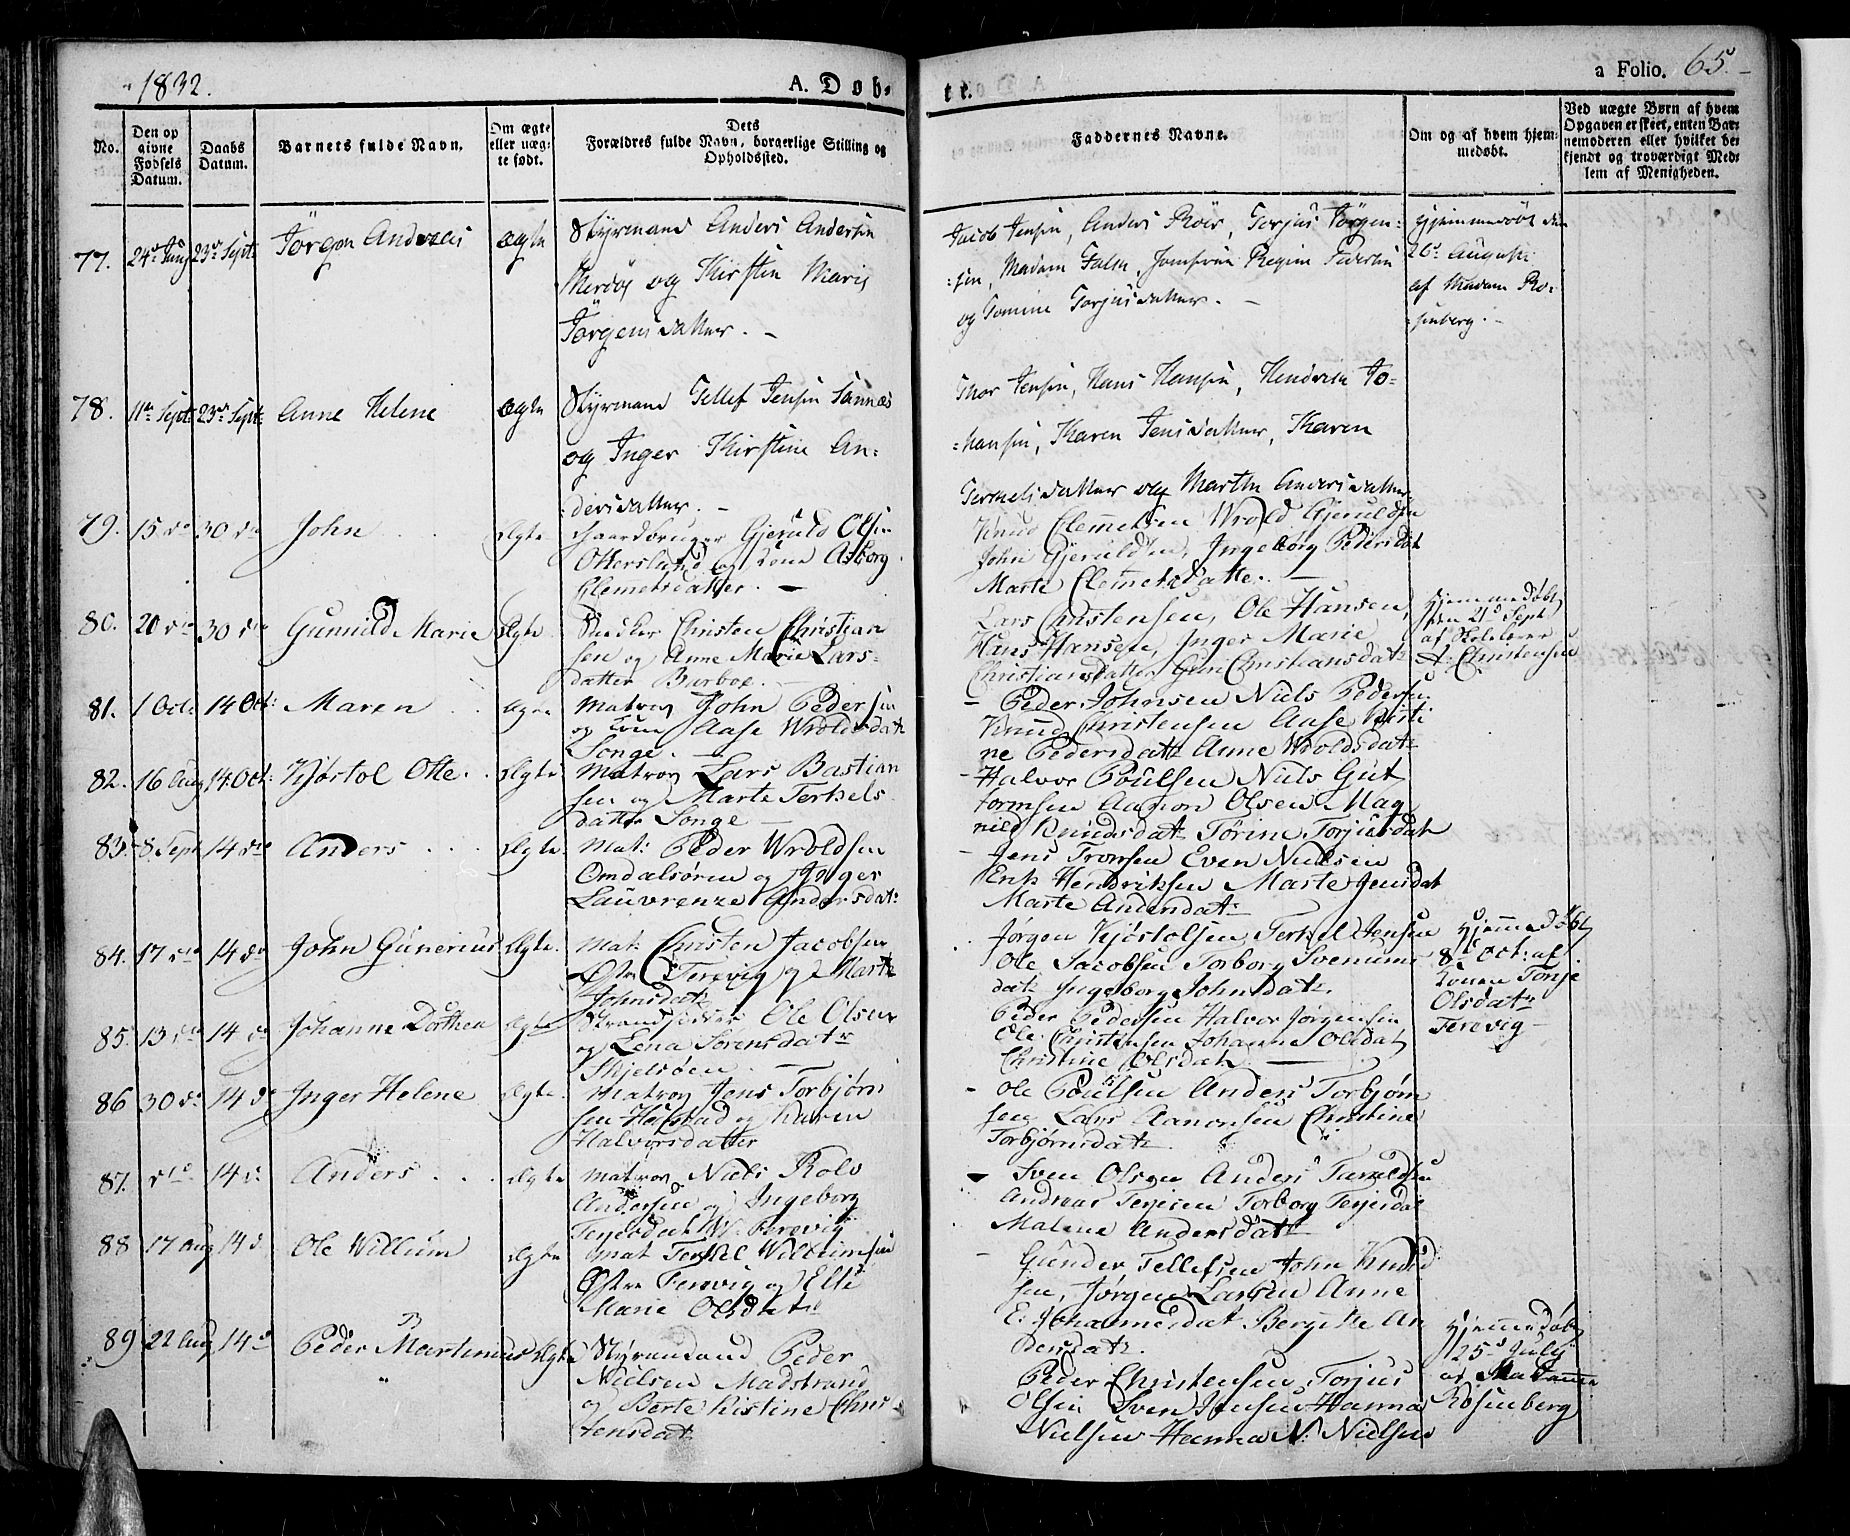 1832.
A. Dob-
te.
a Folio. 65.
No.
Den op
givne
Fødsels
Datum.
Daabs
Datum.
Barnets fulde Navn.
Om ægte
eller uæg-
te født.
Dets
Forældres fulde Navn, borgerlige Stilling og
Opholdssted.
Faddernes Navne.
Om og af hvem hjem-
medøbt.
Ved uægte Børn af hvem
Opgaven er skeet, enten Bar-
nemoderen eller hvilket be-
kjendt og troværdigt Med-
lem af Menigheden.
77. 24de Aug 23de Sept: Jörgen Andreas ægte Styrmand Anders Andersen
Merdøe og Kirstin Marie
Jörgensdatter. –
Jacob Jensen, Anders Roër, Torjus Jörgen-
sen, Madam Falck, Jomfrue Regine Pedersen
og Tomine Torjusdatter. –
Hjemmedøbt den
26de August
af Madam Ro-
senberg. –
78. 11te Sept: 23de Sept: Anne Helene ægte Styrmand Tellef Jensen Sannæs
og Inger Kirstine An-
dersdatter. –
Thor Jensen, Hans Hansen, Hendrich Jo-
hansen, Karen Jensdatter, Karen
Terkelsdatter og Marthe Andersdatter
79. 15 do 30 do John Ægte Gaardbruger Gjeruld Olsen
Otterslund og Kone Asborg
Clemetsdatter. –
Knud Clemetsen Wrold Gjeruldsen
John Gjeruldsen, Ingeborg Pedersdat
Marte Clemetsdatter. –
80. 20 do 30 do Gunnild Marie Ægte Snedker Christen Christian
sen og Anne Marie Lars-
datter Buxboe. –
Lars Christensen, Ole Hansen,
Hans Hansen, Inger Marie
Christiansdatter Gun Christiansdat
Hjemmedøbt
den 21d Sept
af Skolelærer
A. Christensen
81. 1 Oct: 14 Oct: Maren Ægte Matros John Pedersen
og Kone Aase Wroldsdat
Songe. –
Peder Johnsen Niels Pedersen
Knud Christensen Aase Kisti
ne Pedersdatr Anne Wroldsdatr
82. 16 Aug 14 Oct: Kjøstol Otte. Ægte Matros Lars Bastian
sen og Marte Terkels
datter Songe –
Halvor Poulsen Niels Gut
tormsen Aanon Olsen Mag
nild Knudsdatr Tørine Torjusdat
83. 8 Sept 14 do Anders Ægte. Mat: Peder Wroldsen
Omdalsøren og Inger
Lauvrenze Andersdatr
Jens Tronsen Even Nielsen
Erik Hendriksen Marte Jensdat
Marte Andersdatr
84. 17 do 14 do John Gunerius Ægte. Mat: Christen Jacobsen
Østre Terevig og Marte
Johnsdatr
Jørgen Kjøstolsen Terkel Jensen
Ole Jacobsen Torborg Svenums
datr Ingeborg Johnsdatr.
Hjemmedøbt
8de Oct: af
Konen Tonje
Olsdatr
Terevig –
85. 13 do 14 do Johanne Dorthea Ægte Strandsidder Ole Olsen
og Lena Sørensdatr
Skjelsøen. –
Peder Pedersen Halvor Jørgensen
Ole Christensen Johanne Olsdat
Christine Olsdatr –
86 30 do 14 do Inger Helene Ægte. Matros Jens Torbjørn
sen Havstad og Karen
Halvorsdatter
Ole Poulsen Anders Torbjørn
sen Lars Aanonsen Christine
Torbjørnsdatr.
87. do 14 d. Anders Ægte Matros Niels Rolv
Andersen og Ingeborg
Terjesdat W. Terevig
Sven Olsen Anders Taraldsen
Andreas Terjesen Torborg Terjesdat
Malene Andersdatr
88 17 Aug 14 d Ole Willum Ægte Mat Terkel Willumsen
Østre Terevig og Else
Marie Olsdatr
Gunder Tellefsen John Knud
sen, Jørgen Larsen Anne
E. Johannesdat Bergitte An
dersdatr.
89 22 Aug 14 d Peder Martinius Ægte Styrmand Peder
Nielsen Madstrand
og Berte Kistine Chris
tensdatr
Peder Christensen Torjus
Olsen Sven Jensen Hanna
Nielsen Hanna N: Nielsen
Hjemmedøbt
25d July
af Madame
Rosenberg